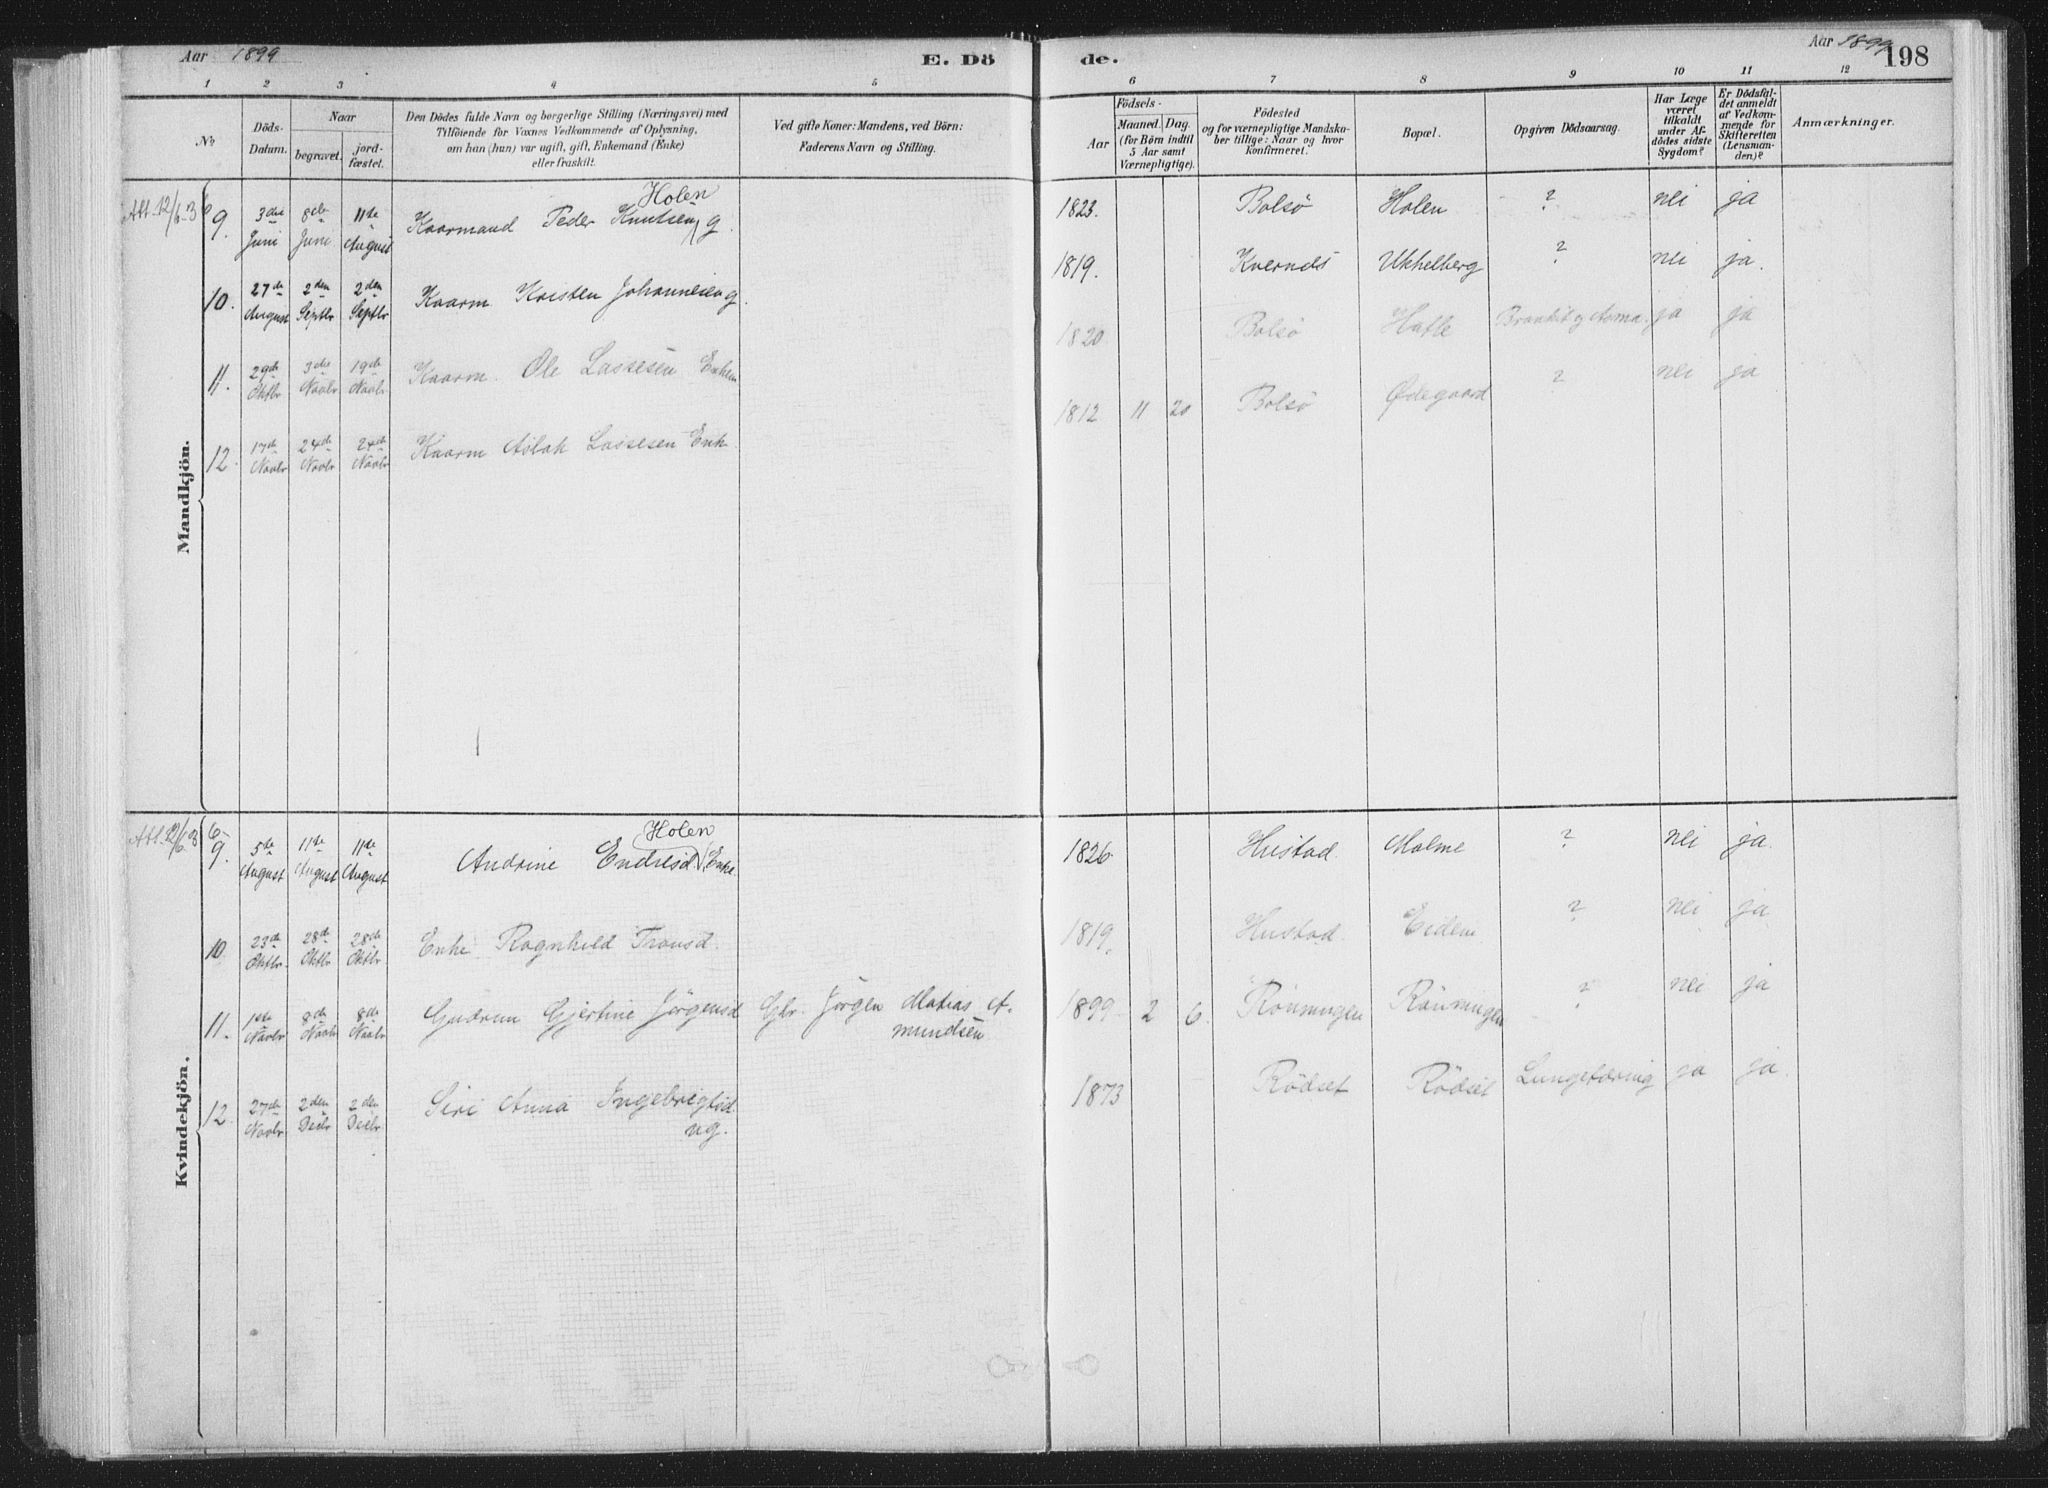 Aar 1899
E. Dö
de.
Aar 1899
198
1 2 3 4 5 6 7 8 9 10 11 12
No
Döds-
Datum.
Naar
begravet.
jord-
fæstet.
Den Dödes fulde Navn og borgerlige Stilling (Næringsvei) med
Tilföiende for Voxnes Vedkommende af Oplysning,
om han (hun) var ugift, gift, Enkemand (Enke)
eller fraskilt.
Ved gifte Koner: Mandens, ved Börn:
Faderens Navn og Stilling.
Födsels-
Aar
Maaned. Dag.
(for Börn indtil
5 Aar samt
Værnepligtige).
Födested
og for værnepligtige Mandska-
ber tillige: Naar og hvor
konfirmeret.
Bopæl.
Opgiven Dödsaarsag.
Har Læge
været
tilkaldt
under Af-
dödes sidste
Sygdom?
Er Dödsfal-
det anmeldt
af Vedkom-
mende for
Skifteretten
(Lensman-
den)?
Anmærkninger.
Mandkjön.
Att. 12/6-36
9. 3die Juni 8de Juni 11te August Kaarmand Peder Knutsen Holen g. 1823. Bolsø Holen ? nei ja
10. 27de August 2den Septbr 2den Septbr Kaarm. Kristen Johannesen g. 1819. Kvernæs Ukkelberg ? nei ja.
11. 29de Oktbr 3die Novbr 19de Novbr Kaarm. Ole Lassesen Enkem 1820 Bolsø Hatle Bronkit og Asma. ja ja
12. 17de Novbr 24de Novbr 24de Novbr Kaarm Aslak Lassesen Enk. 1812 11 20 Bolsø Ødegaard ? nei ja
Kvindekjön.
Att. 12/6-36
9. 5te August 11te August 11te August Andrine Endresd. Holen Enke. 1826. Hustad. Malme ? nei ja.
10. 23de Oktbr. 28de Oktbr 28de Oktbr. Enke Ragnhild Tronsd. 1819. Hustad. Eidem ? nei ja
11. 1ste Novbr 8de Novbr 8de Novbr Gudrun Gjertine Jørgensd Gbr. Jørgen Matias A-
mundsen 1899 2 6. Rönningen Rönningen ? nei ja
12. 27de Novbr. 2den Decbr 2den Decbr Siri Anna Ingebrigtsd
ug. 1873 Rödset Rödset Lungetæring ja ja.